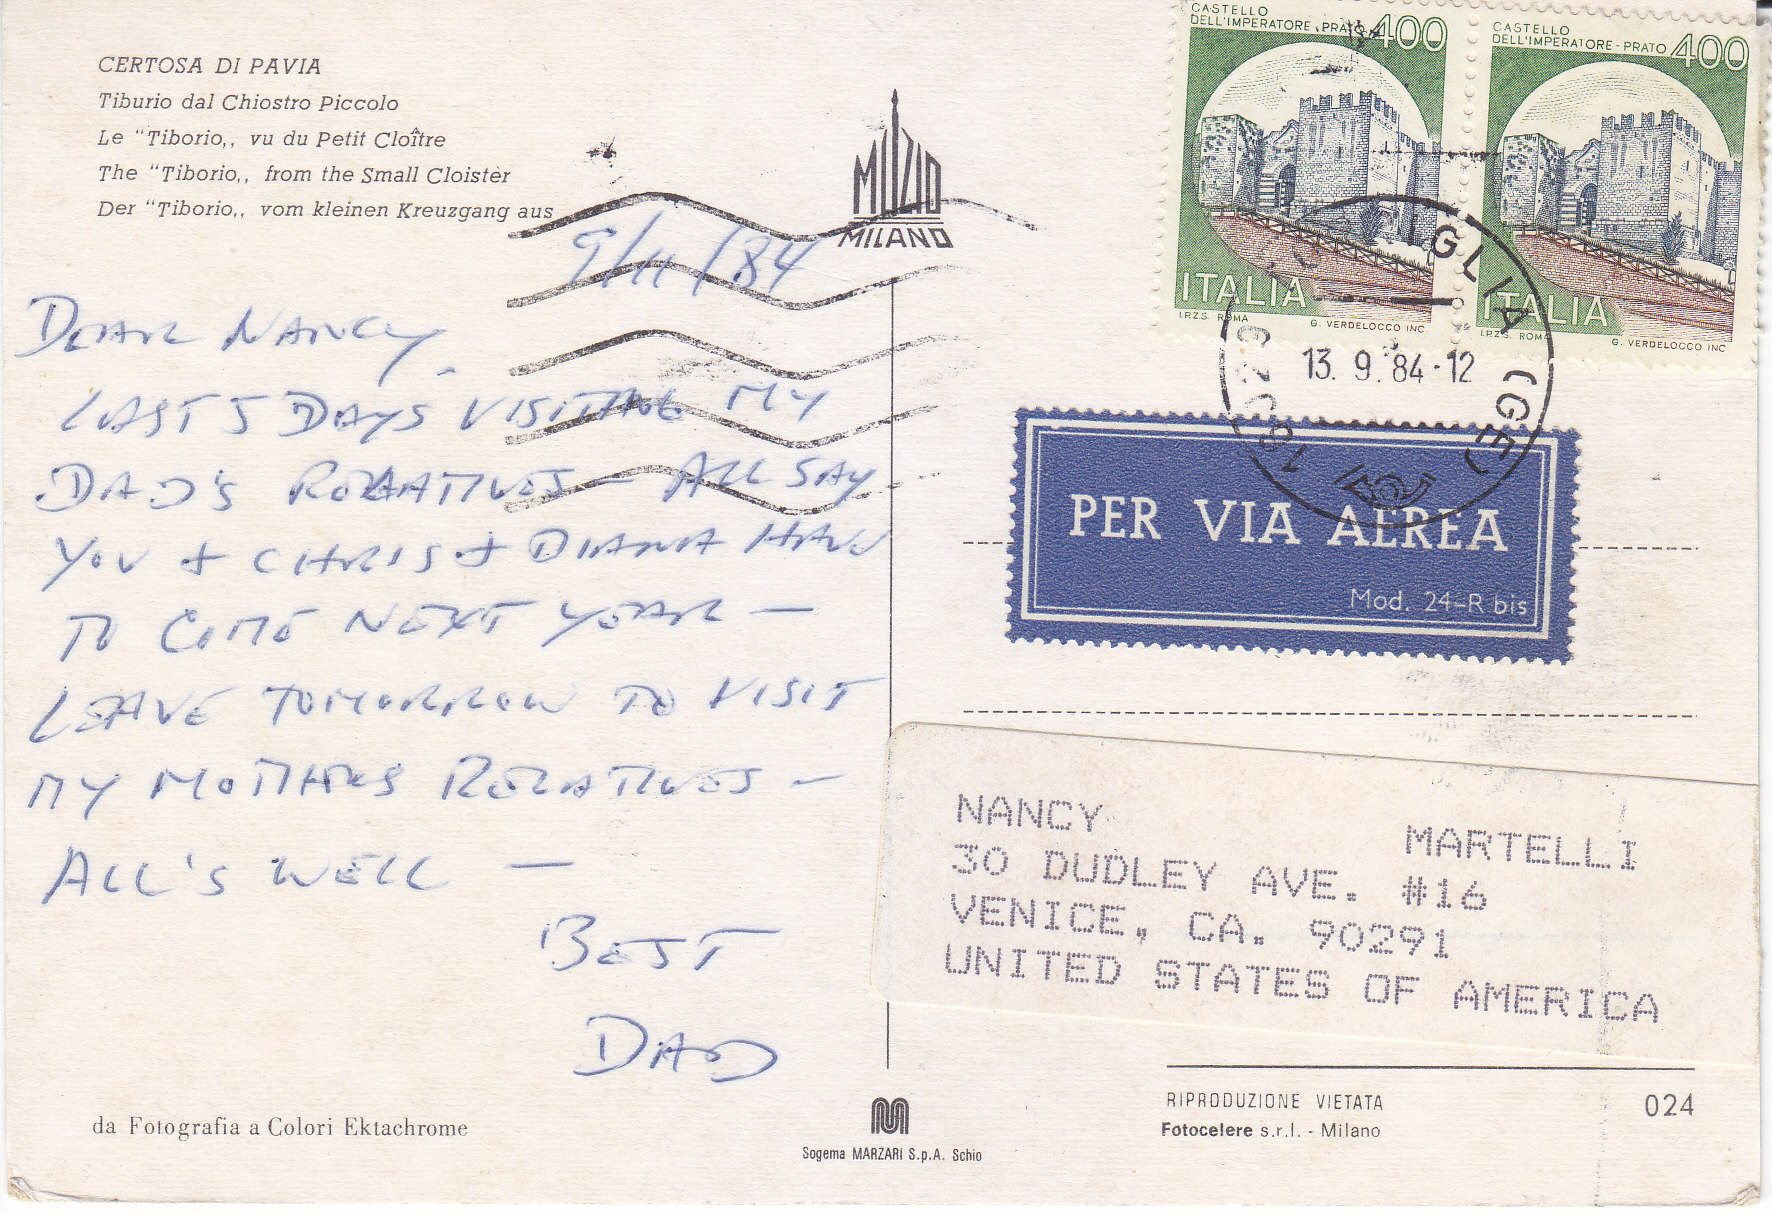 CERTOSA DI PAVIA
Tiburio dal Chiostro Piccolo
Le "Tiborio,, vu du Petit Cloître
The "Tiborio,, from the Small Cloister
Der "Tiborio,, vom kleinen Kreuzgang aus
MILZIO
MILANO
CASTELLO
DELL'IMPERATORE - PRATO 400
ITALIA
I.P.Z.S. ROMA G. VERDELOCCO INC.
CASTELLO
DELL'IMPERATORE - PRATO 400
ITALIA
I.P.Z.S. ROMA G. VERDELOCCO INC
GLIA (GE)
13. 9. 84 - 12
9/11/84
DEAR NANCY,
LAST 5 DAYS VISITING MY
DAD'S RELATIVES - ALL SAY
YOU + CHRIS + DIANA HAVE
TO COME NEXT YEAR -
LEAVE TOMORROW TO VISIT
MY MOTHERS RELATIVES -
ALL'S WELL -
BEST
DAD
PER VIA AEREA
Mod. 24-R bis
NANCY MARTELLI
30 DUDLEY AVE. #16
VENICE, CA. 90291
UNITED STATES OF AMERICA
da Fotografia a Colori Ektachrome
Sogema MARZARI S.p.A. Schio
RIPRODUZIONE VIETATA
Fotocelere s.r.l. - Milano
024